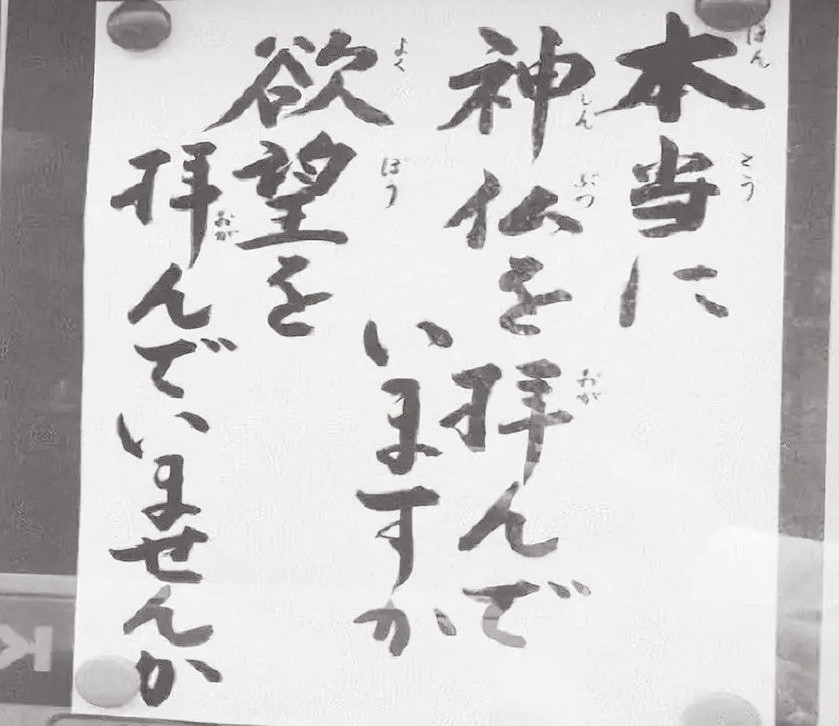 本当に
神仏を拝んで
いますか
欲望を
拝んでいませんか